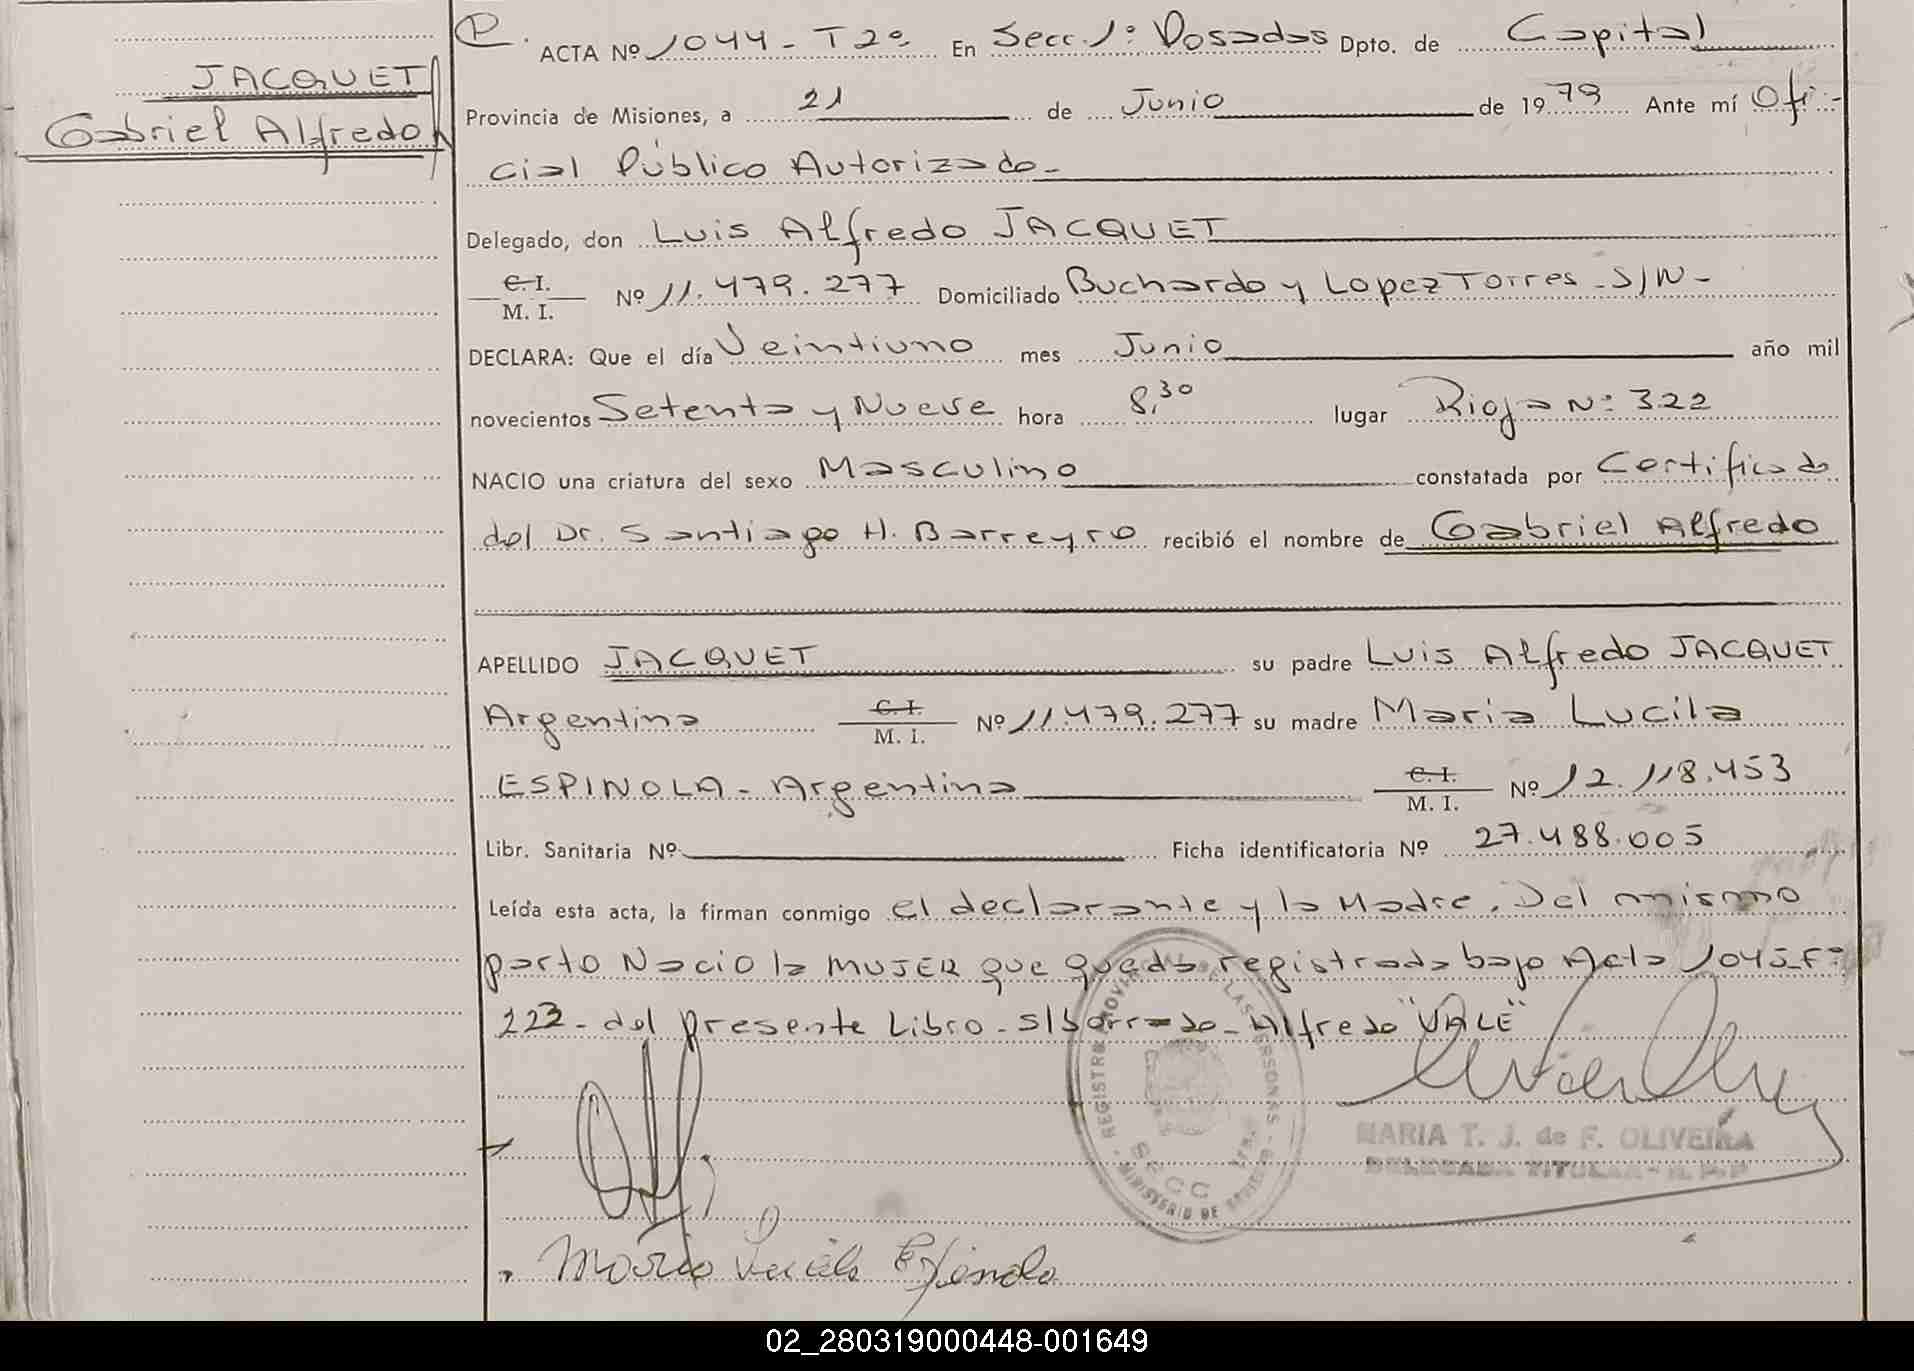 JACQUET
Gabriel Alfredo
P. ACTA Nº 1044 - T2º En Secc. 1º Posadas Dpto. de Capital
Provincia de Misiones, a 21 de Junio de 1979 Ante mí Ofi-
cial Público Autorizado -
Delegado, don Luis Alfredo JACQUET
C. I.
M. I. Nº 11.479.277 Domiciliado Buchardo y Lopez Torres - S/N -
DECLARA: Que el día Veintiuno mes Junio año mil
novecientos Setenta y Nueve hora 8,30 lugar Rioja Nº 322
NACIO una criatura del sexo Masculino constatada por Certificado
del Dr. Santiago H. Barreyro recibió el nombre de Gabriel Alfredo
APELLIDO JACQUET su padre Luis Alfredo JACQUET
Argentina C. I. M. I. Nº 11.479.277 su madre Maria Lucila
ESPINOLA - Argentina C. I. M. I. Nº 12.118.453
Libr. Sanitaria Nº Ficha identificatoria Nº 27.488.005
Leída esta acta, la firman conmigo el declarante y la Madre. Del mismo
parto Nacio la MUJER que queda registrada bajo Acta 1045 - Fº
223 - del presente Libro - S/borrado - Alfredo "VALE"
REGISTRO PROVINCIAL DE LAS PERSONAS
MINISTERIO DE
MARIA T. J. de F. OLIVEIRA
DELEGADA TITULAR - R. P. P
Maria Lucila Espinola
02_280319000448-001649